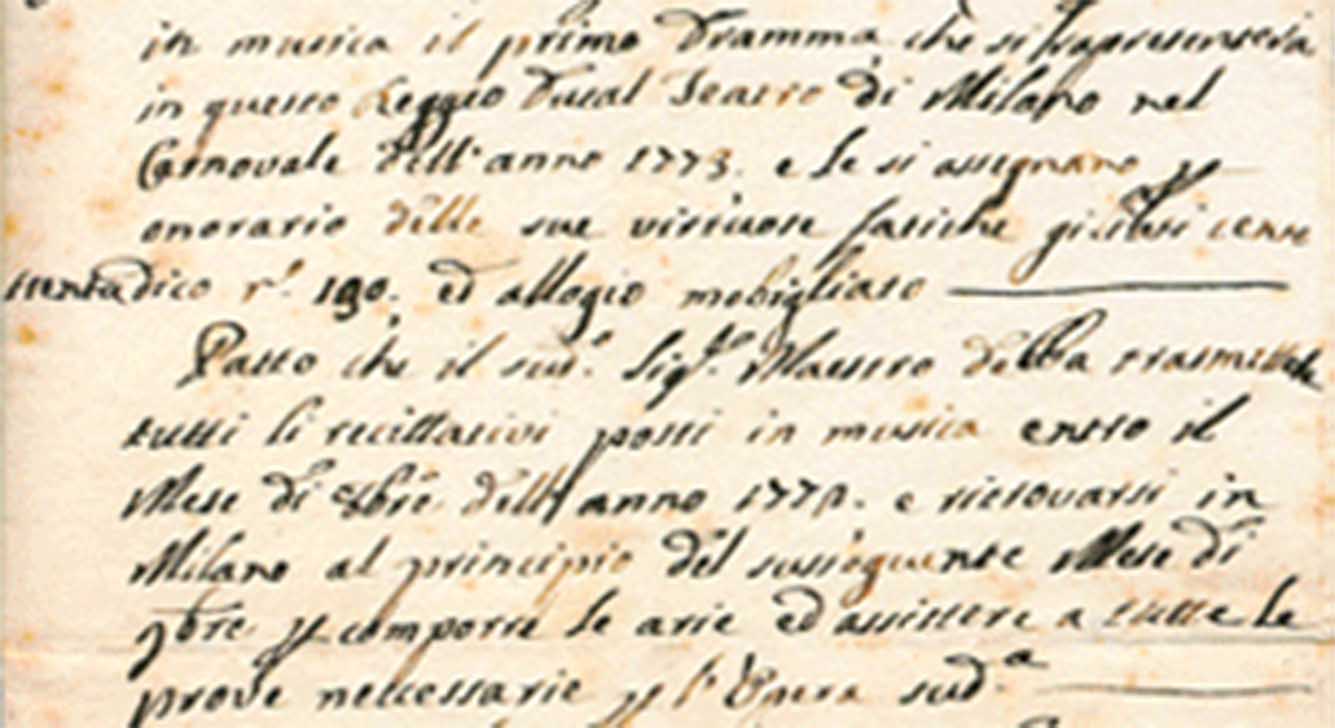 in musica il primo Dramma che si rapresenterà
in questo Reggio Ducal Teatro di Milano nel
Carnovale dell'anno 1773. e le si assegnano p
onorario delle sue virtuose fatiche gigliati cento
trentadico n.° 130. ed allogio mobigliato
Patto che il sud.° Sig.re Maestro debba trasmettere
tutti li recittativi posti in musica entro il
Mese di 8bre dell'anno 1772. e ritrovarsi in
Milano al principio del susseguente Mese di
9bre p comporre le arie ed assistere a tutte le
prove neccessarie p l'Opera sud.a